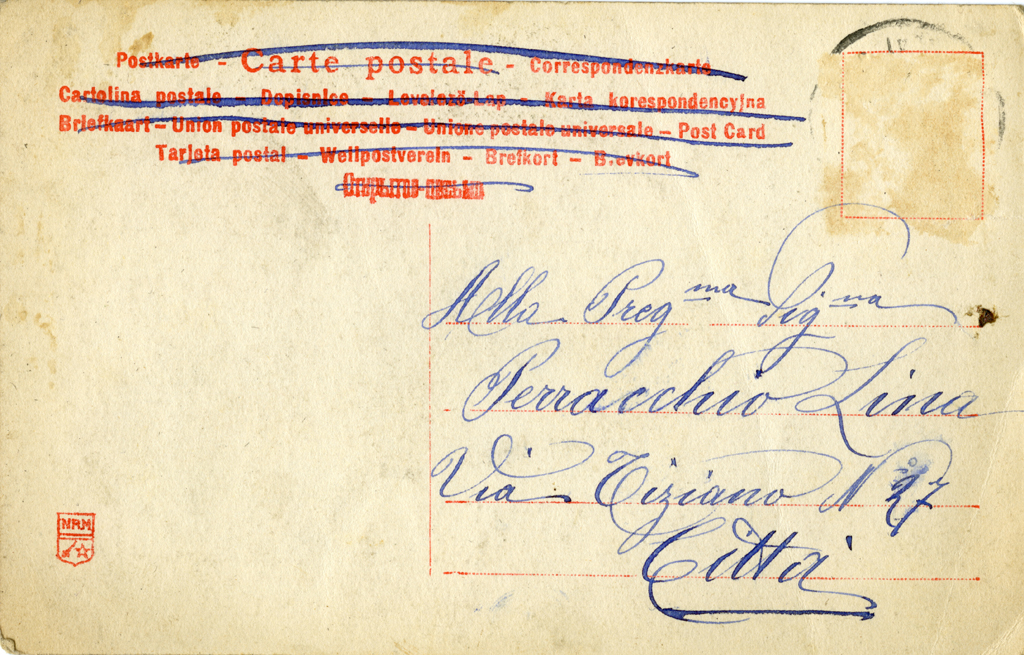 Postkarte - Carte postale - Correspondenzkarte
Cartolina postale - Dopisnice - Levelező-Lap - Karta korespondencyjna
Briefkaart - Union postale universelle - Unione postale universale - Post Card
Tarjeta postal - Weltpostverein - Brefkort - Brevkort
Alla Preg ma Sig na
Perracchio Lina
Via Tiziano N° 27
Città
NRM